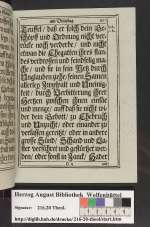 am Dienstag.
Teuffel / daß er solch dein Ge-
schöpff und Ordnung nicht ver-
rücke noch verderbe / und nicht
etwan die Ehegatten ihres stan-
des verdrossen und feindselig ma-
che / und sie in sein Netz durch
Unglauben ziehe / seinen Samen
allerley Zwyspalt und Uneinig-
keit / durch Verbitterung ihrer
Hertzen zwischen ihnen einsäe
und menge / auff daß sie nicht wi-
der dein Gebott / zu Ehbruch
und Unzucht / oder einander zu
verlassen gereitzt / oder in andere
grosse Sünd / Schand und La-
ster verführet und gestürtzet wer-
den / oder sonst in Zanck / Hader
Herzog August Bibliothek Wolfenbüttel
Signatur: 216.20 Theol.
http://diglib.hab.de/drucke/216-20-theol/start.htm